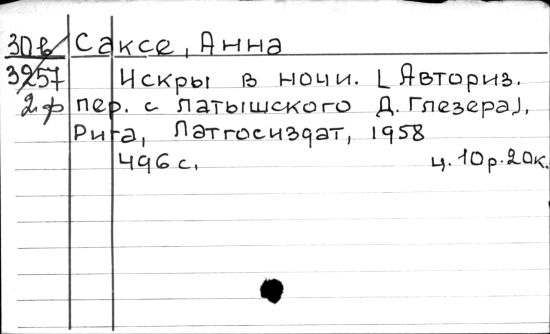 30в Саксе, Анна
3257 Искры в ночи. [Авториз.
2.ф пер. с латышского Д. Глезера],
Рига, Латгосиздат, 1958
496 с. ц. 10р.20к.